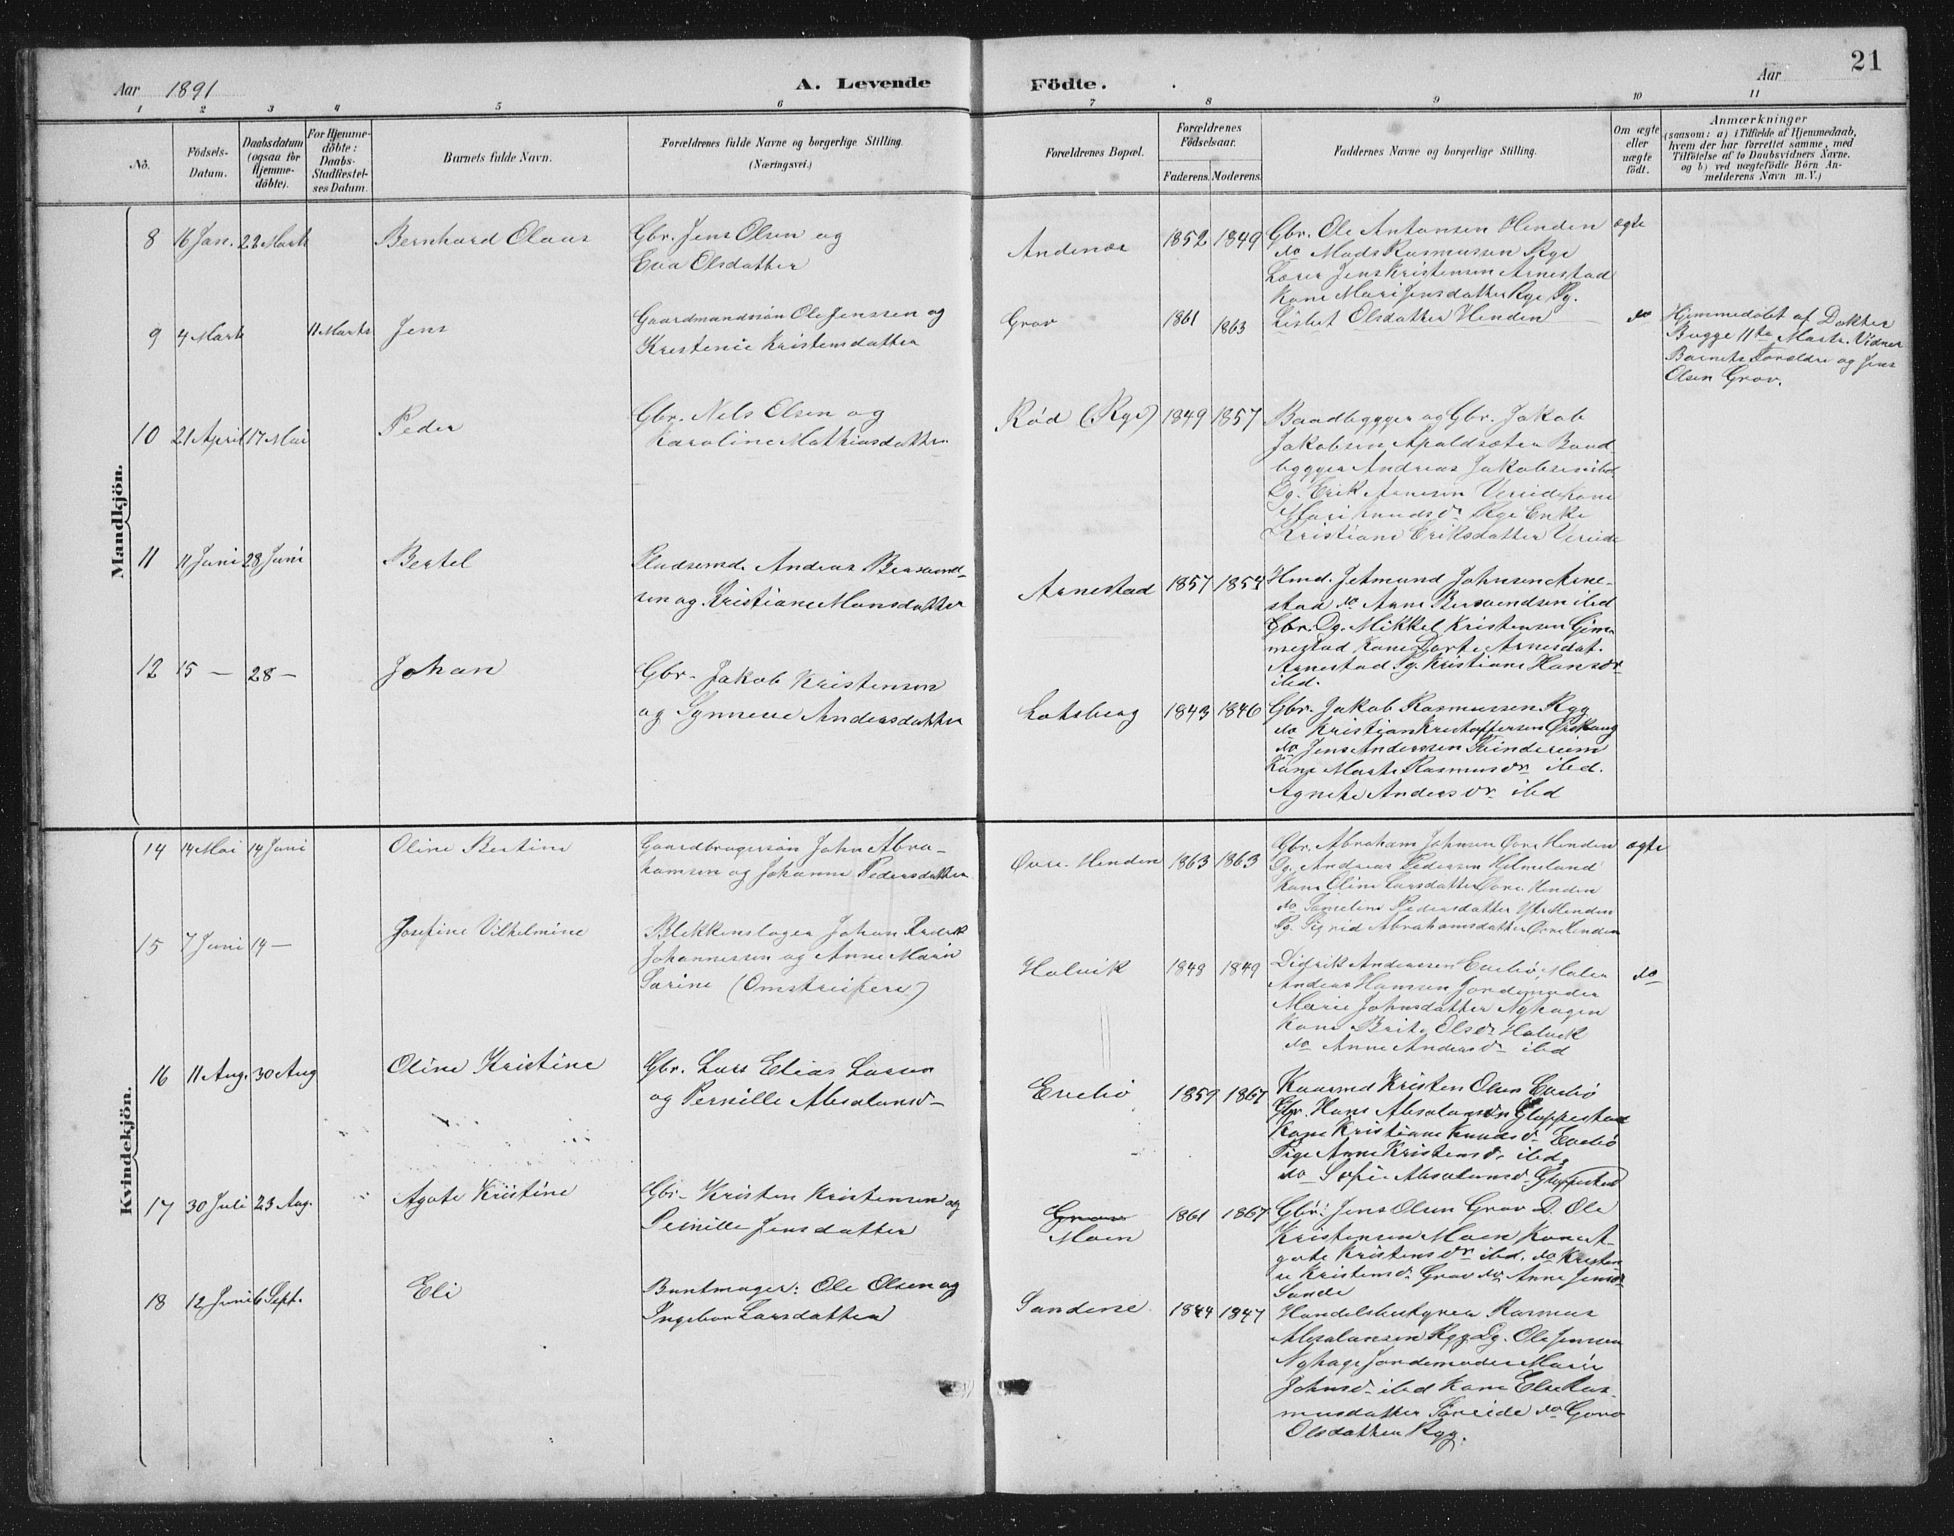 Aar 1891
A. Levende
Födte.
Aar
21
1 2 3 4 5 6 7 8 9 10 11
No.
Födsels-
Datum.
Daabsdatum
(ogsaa for
Hjemme-
döbte).
For Hjemme-
döbte:
Daabs-
Stadfæstel-
ses Datum.
Barnets fulde Navn.
Forældrenes fulde Navne og borgerlige Stilling.
(Næringsvei.)
Forældrenes Bopæl.
Forældrenes
Födselsaar.
Faderens. Moderens.
Faddernes Navne og borgerlige Stilling.
Om ægte
eller
uægte
födt.
Anmærkninger
(saasom: a) i Tilfælde af Hjemmedaab,
hvem der har forrettet samme, med
Tilföielse af to Daabsvidners Navne.
og b) ved uægtefödte Börn An-
melderens Navn m. V.)
Mandkjön.
8 16 Jan. 22 Marts
Bernhard Olaus
Gbr. Jens Olsen og
Eva Olsdatter
Andenæs
1852 1849
Gbr. Ole Antonsen Henden
do Mads Rasmussen Rye
Lærer Jens Kristensen Arnestad
Kone Mari Jensdatter Rye Pg.
Lisbet Olsdatter Henden
ægte
9 4 Marts 11 Marts
Jens
Gaardmandssøn Ole Jenssen og
Krestenie Kristensdatter
Grov
1861 1863
do
Hjemmedøbt af Dokter
Bugge 11te Marts. Vidner
Barnets Forældre og Jens
Olsen Grov.
10 21 April 17 Mai
Peder
Gbr. Nels Elsen og
Karoline Mathiasdatter
Rød (Rye)
1849 1857
Baadbygger og Gbr. Jakob
Jakobsen Apaldsæter Baad
bygger Andreas Jakobsen ibd
Og. Erik Arnesen Vereide Kone
Mari Knudsdr Rye Enke
Kristiane Eriksdatter Vereide
11 11 Juni 28 Juni
Bertel
Pladsemd. Andreas Bersvend-
sen og Kristiane Monsdatter
Arnestad
1857 1854
Hmd. Jetmund Johnsen Arne-
stad do Arne Bersvendsen ibid
Gbr. Og. Mikkel Kristensen Gim-
mestad Kone Dorte Arnesdat.
Arnestad Pg. Kristiane Hansdr
ibd.
12 15 – 28 –
Johan
Gbr. Jakob Kristensen
og Synneve Andersdatter
Lotsberg
1843 1846
Gbr. Jakob Rasmussen Ryg
do Kristian Kristoffersen Ørskaug
do Jens Anderssen
Kone Marte Rasmusdr ibid.
Agnete Andersdr ibid
Kvindekjön.
14 14 Mai 14 Juni
Oline Bertine
Gaardbrugersøn John Abra-
hamsen og Johanne Pedersdatter
Øvre Henden
1863 1863
Gbr. Abraham Johnsen Øvre Henden
Og. Andreas Pedersen Helmeland
Kone Oline Larsdatter Øvre Henden
do Sameline Pedersdatter Ytre Henden
Pg. Sigrid Abrahamsdatter Øvre Henden
ægte
15 7 Juni 14 –
Josefine Vilhelmine
Blekkenslager Johan Fredrik
Johannessen og Anne Marie
Sørine (Omstreifere)
Holvik
1848 1849
Didrik Anderssen Evebø, Maler
Andreas Hansen Jordemoder
Marie Johnsdatter Nyhagen
Kone Brite Olsdr Holvik
do Anne Andersdr ibid
do
16 11 Aug. 30 Aug
Oline Kristine
Gbr. Lars Elias Larsen
og Pernille Absalonsd–
Evebø
1859 1867
Kaarmd Kristen Olsen Evebø
Gbr. Hans Absalonsen Gloppestad
Kone Kristiane Knudsdr Evebø
Pige Anne Kristensdr ibid
do Sofie Absalonsdr Gloppestad
17 30 Juli 23 Aug.
Agate Kristine
Gbr. Kristen Kristensen og
Pernille Jensdatter
Grov
Moen
1861 1867
Gbr. Jens Olsen Grov D. Ole
Kristensen Moen Kone A-
gate Kristensdr ibid. do Kristen-
e Kristensdr Grov do Anne Jensdr
Sande
18 12 Juni 6 Sept.
Eli
Buntmager: Ole Olsen og
Ingebor Larsdatter
Sandene
1844 1847
Handelsbestyrer Rasmus
Absalonsen Ryg Og. Ole Jenssen
Nyhage Jordemoder Marie
Johnsd– ibid Kone Else Ras-
musdatter Søreide do Goro
Olsdatter Ryg.